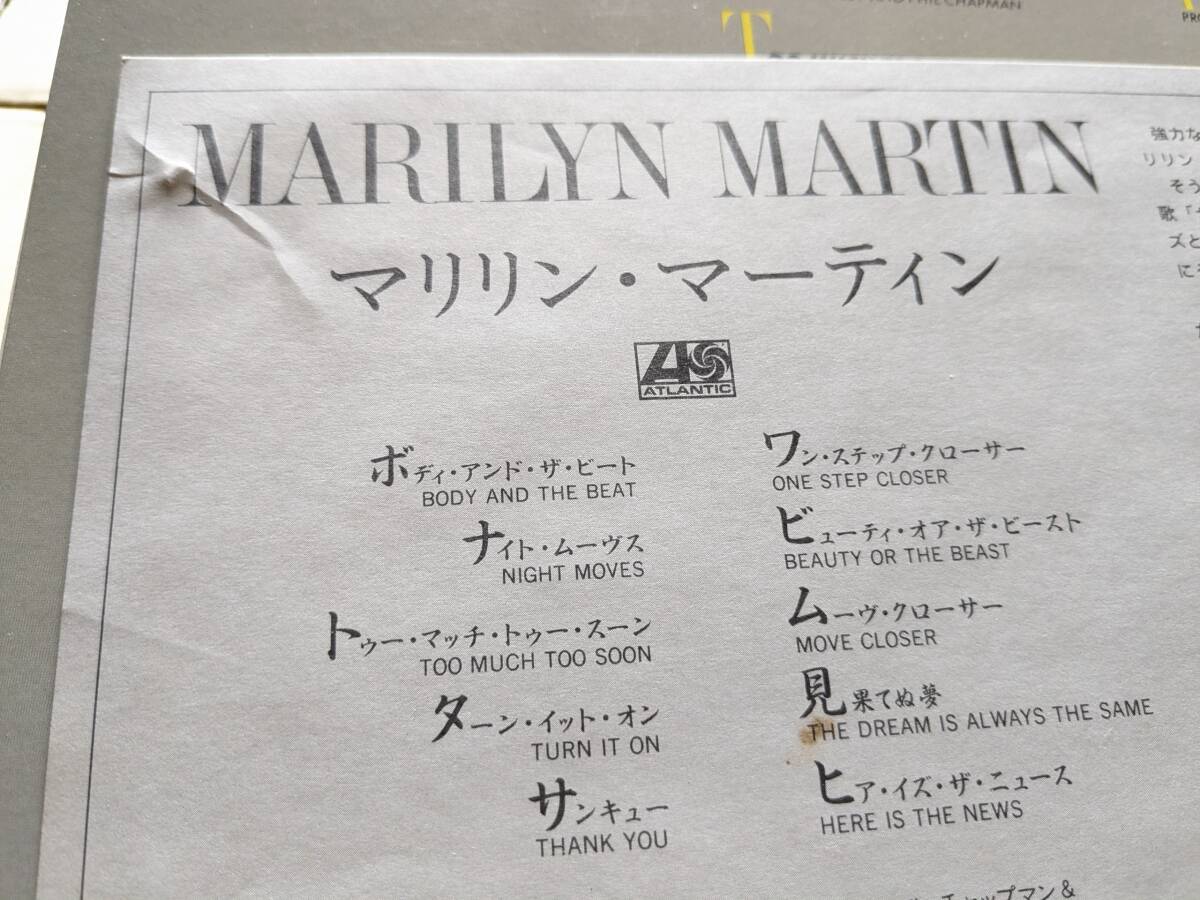 PHIL CHAPMAN
MARILYN MARTIN
マリリン・マーティン
ATLANTIC
ボディ・アンド・ザ・ビート
BODY AND THE BEAT
ナイト・ムーヴス
NIGHT MOVES
トゥー・マッチ・トゥー・スーン
TOO MUCH TOO SOON
ターン・イット・オン
TURN IT ON
サンキュー
THANK YOU
ワン・ステップ・クローサー
ONE STEP CLOSER
ビューティ・オア・ザ・ビースト
BEAUTY OR THE BEAST
ムーヴ・クローサー
MOVE CLOSER
見果てぬ夢
THE DREAM IS ALWAYS THE SAME
ヒア・イズ・ザ・ニュース
HERE IS THE NEWS
強力な
リリン
そう
歌「
ズと
に
チャップマン&